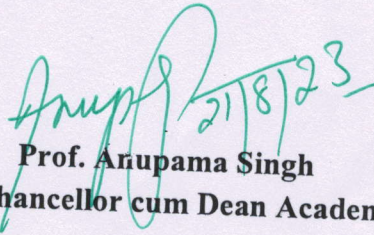 21/8/23
Prof. Anupama Singh
hancellor cum Dean Academ